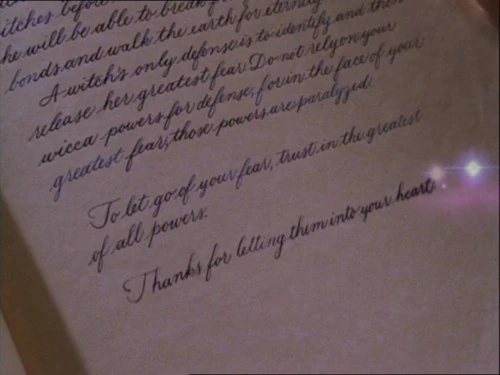 itches before
he will be able to break
bonds and walk the earth for eternity
A witch's only defense is to identify and then
release her greatest fear. Do not rely on your
wicca powers for defense, for in the face of your
greatest fear, those powers are paralyzed.
To let go of your fear, trust in the greatest
of all powers.
Thanks for letting them into your heart